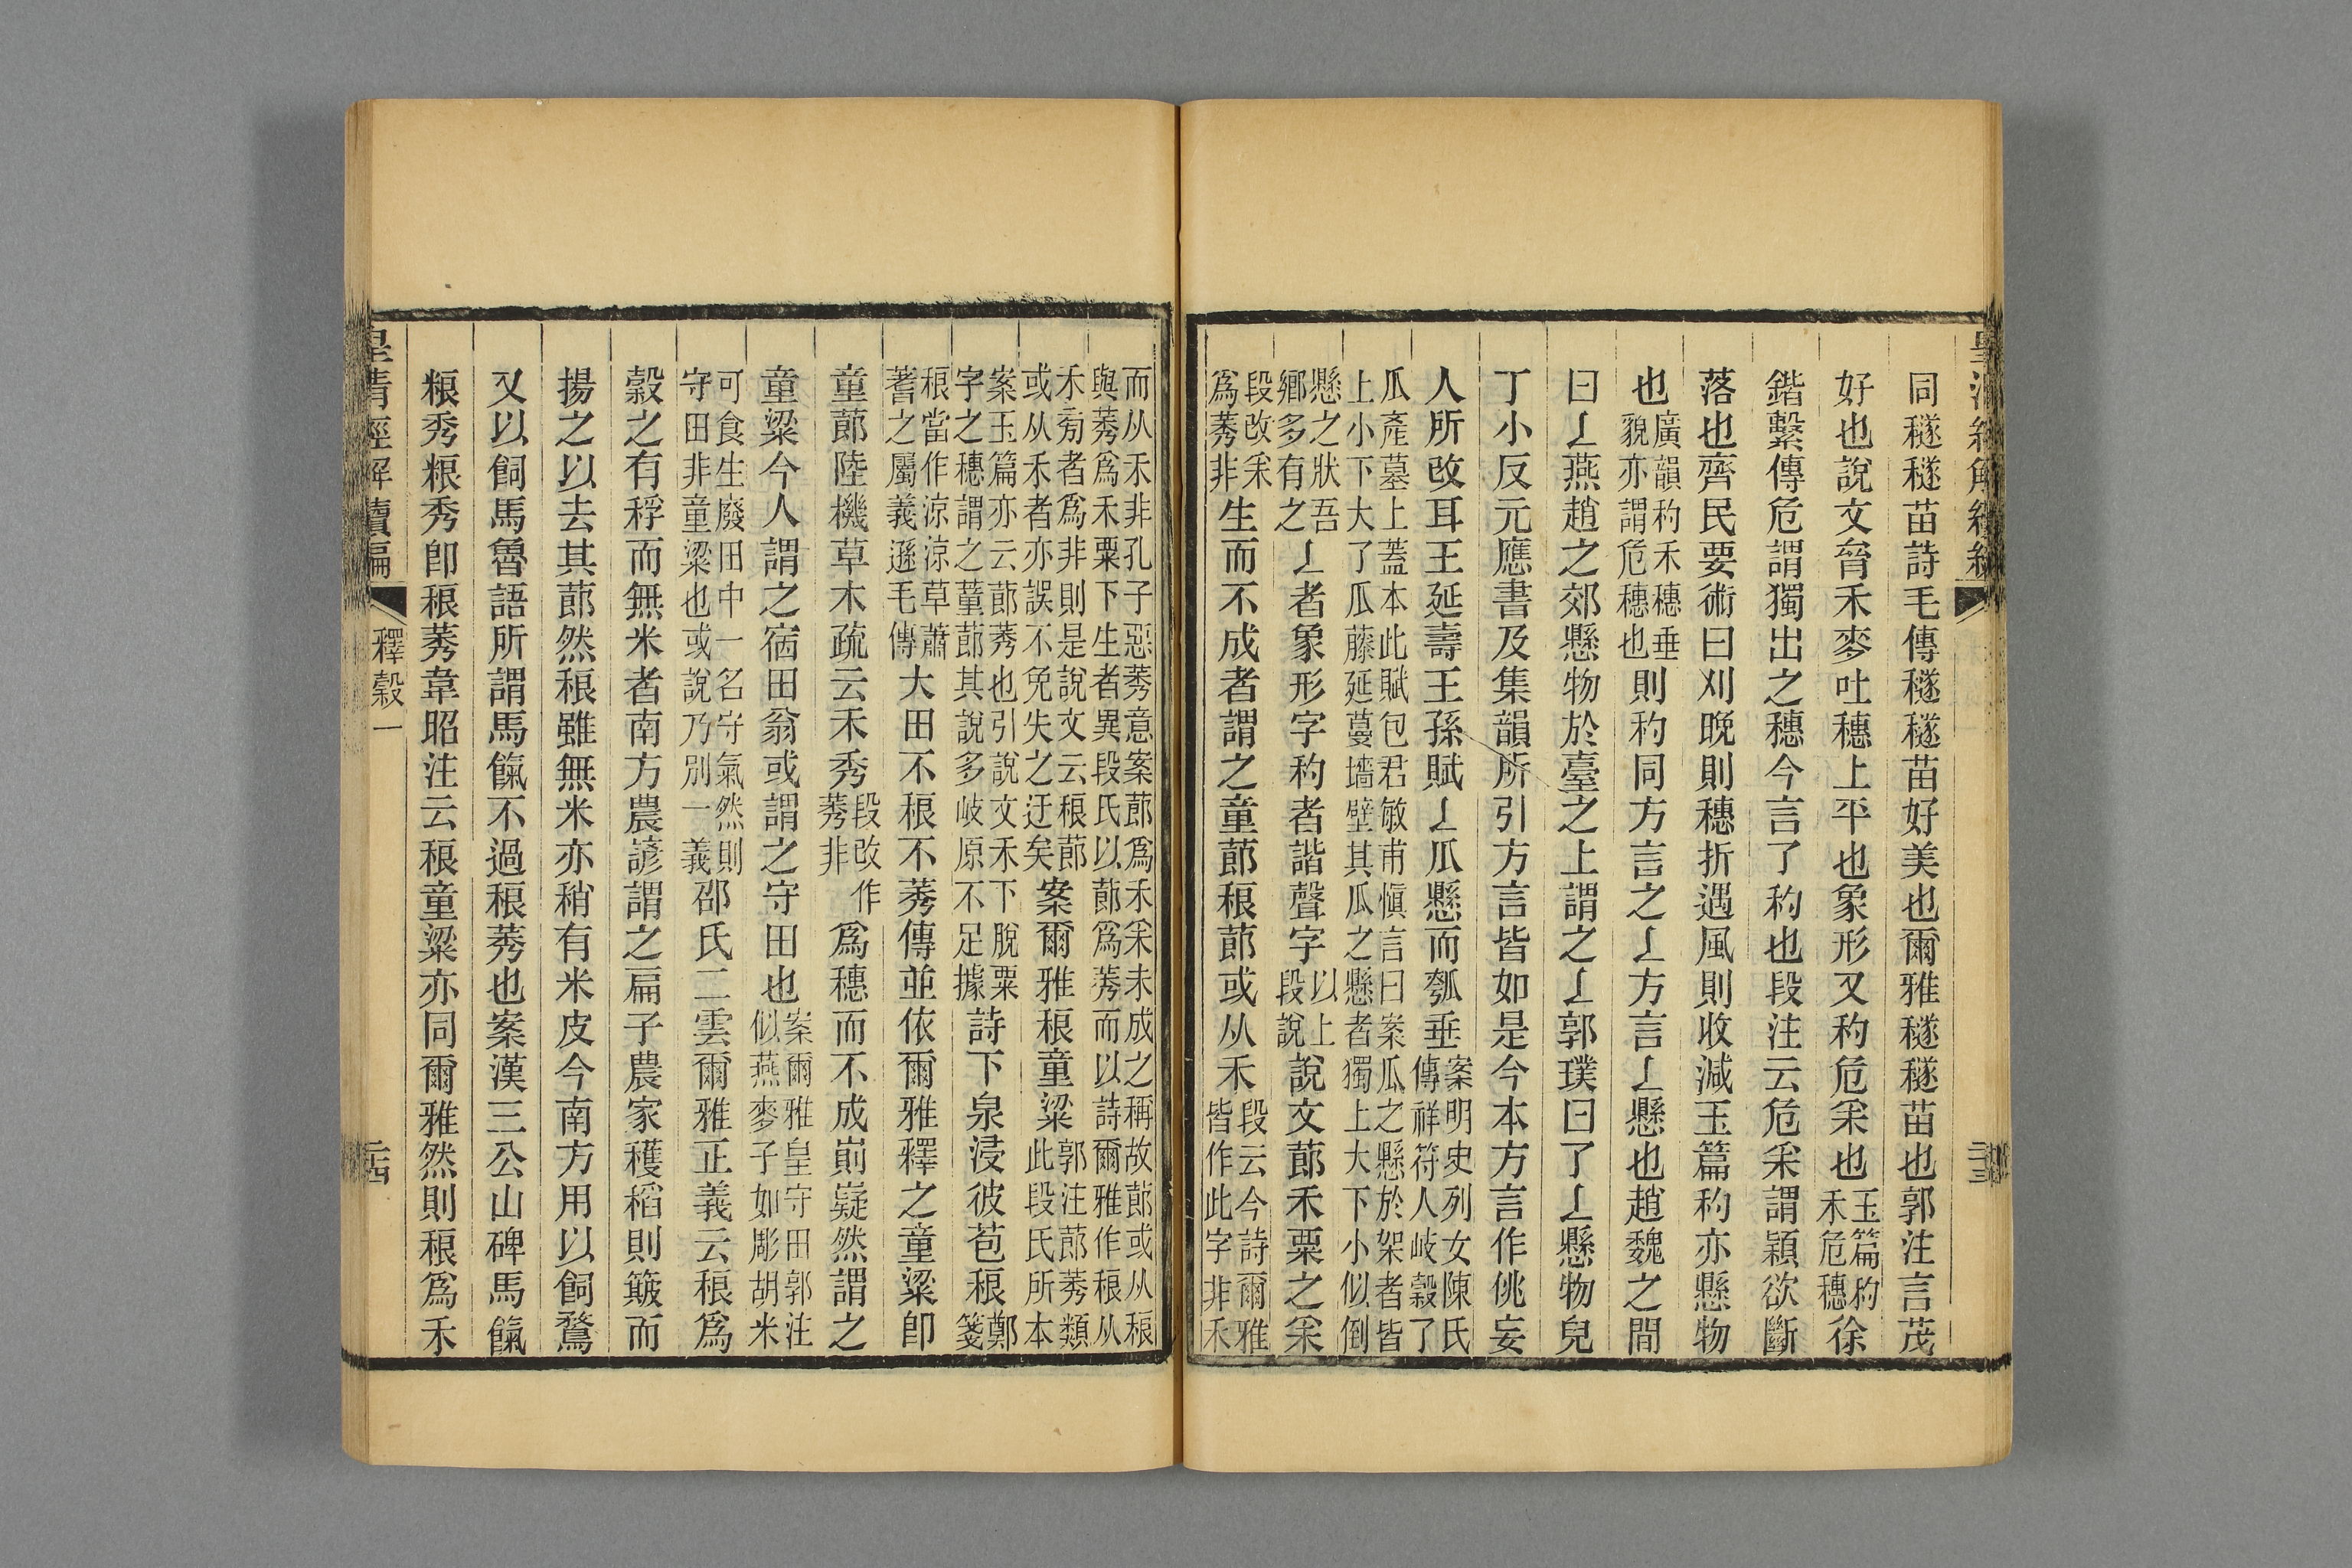 皇清經解續編 二十三
同穟穟苗詩毛傳穟穟苗好美也爾雅穟穟苗也郭注言茂
好也說文齊禾麥吐穗上平也象形又䄪危采也玉篇䄪禾危穗徐
鍇繫傳危謂獨出之穗今言了䄪也段注云危采謂穎欲斷
落也齊民要術曰刈晚則穗折遇風則收減玉篇䄪亦懸物
也廣韻䄪禾穗垂貌亦謂危穗也則䄪同方言之𠄏方言𠄏懸也趙魏之間
曰𠄏燕趙之郊懸物於臺之上謂之𠄏郭璞曰了𠄏懸物皃
丁小反元應書及集韻所引方言皆如是今本方言作佻妄
人所改耳王延壽王孫賦𠄏瓜懸而瓠垂案明史列女陳氏傳祥符人岐穀了
瓜產墓上蓋本此賦包君敏甫愼言曰案瓜之懸於架者皆上小下大了瓜藤延蔓墻壁其瓜之懸者獨上大下小似倒
懸之狀吾鄉多有之𠄏者象形字䄪者諧聲字以上段說說文蓈禾粟之采
段改采爲莠非生而不成者謂之童蓈稂蓈或从禾段云今詩爾雅皆作此字非禾
而从禾非孔子惡莠意案蓈爲禾采未成之稱故蓈或从稂與莠爲禾粟下生者異段氏以蓈爲莠而以詩爾雅作稂从
禾旁者爲非則是說文云稂蓈或从禾者亦誤不免失之迂矣案爾雅稂童粱郭注蓈莠類此段氏所本
案玉篇亦云蓈莠也引說文禾下脫粟字之穗謂之蕫蓈其說多岐原不足據詩下泉浸彼苞稂鄭箋
稂當作涼涼草蕭蓍之屬義遜毛傳大田不稂不莠傳並依爾雅釋之童粱即
童蓈陸機草木疏云禾秀段改作莠非爲穗而不成崱嶷然謂之
童粱今人謂之宿田翁或謂之守田也案爾雅皇守田郭注似燕麥子如彫胡米
可食生廢田中一名守氣然則守田非童粱也或說乃別一義邵氏二雲爾雅正義云稂爲
穀之有稃而無米者南方農諺謂之扁子農家穫稻則簸而
揚之以去其蓈然稂雖無米亦稍有米皮今南方用以飼鶩
又以飼馬魯語所謂馬餼不過稂莠也案漢三公山碑馬餼
粻秀粻秀卽稂莠韋昭注云稂童粱亦同爾雅然則稂爲禾
皇清經解續編 釋穀一 二十四